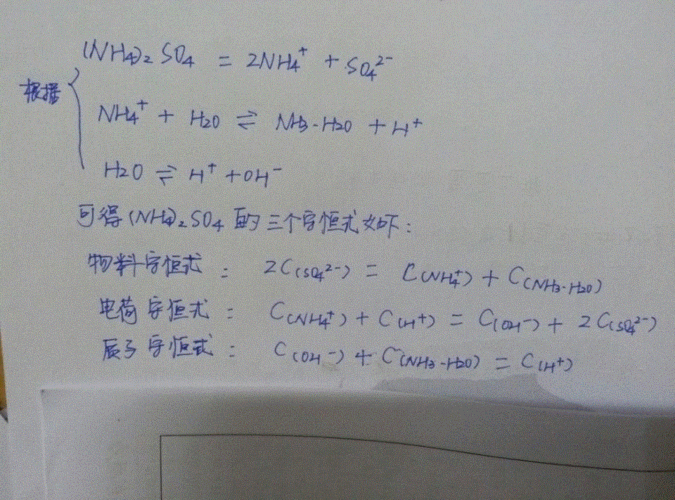 (NH4)2 SO4 = 2NH4⁺ + SO4²⁻
根据
NH4⁺ + H2O ⇌ NH3-H2O + H⁺
H2O ⇌ H⁺ + OH⁻
可得(NH4)2SO4的三个守恒式如下:
物料守恒式: 2C(SO4²⁻) = C(NH4⁺) + C(NH3-H2O)
电荷守恒式: C(NH4⁺) + C(H⁺) = C(OH⁻) + 2C(SO4²⁻)
质子守恒式: C(OH⁻) + C(NH3-H2O) = C(H⁺)